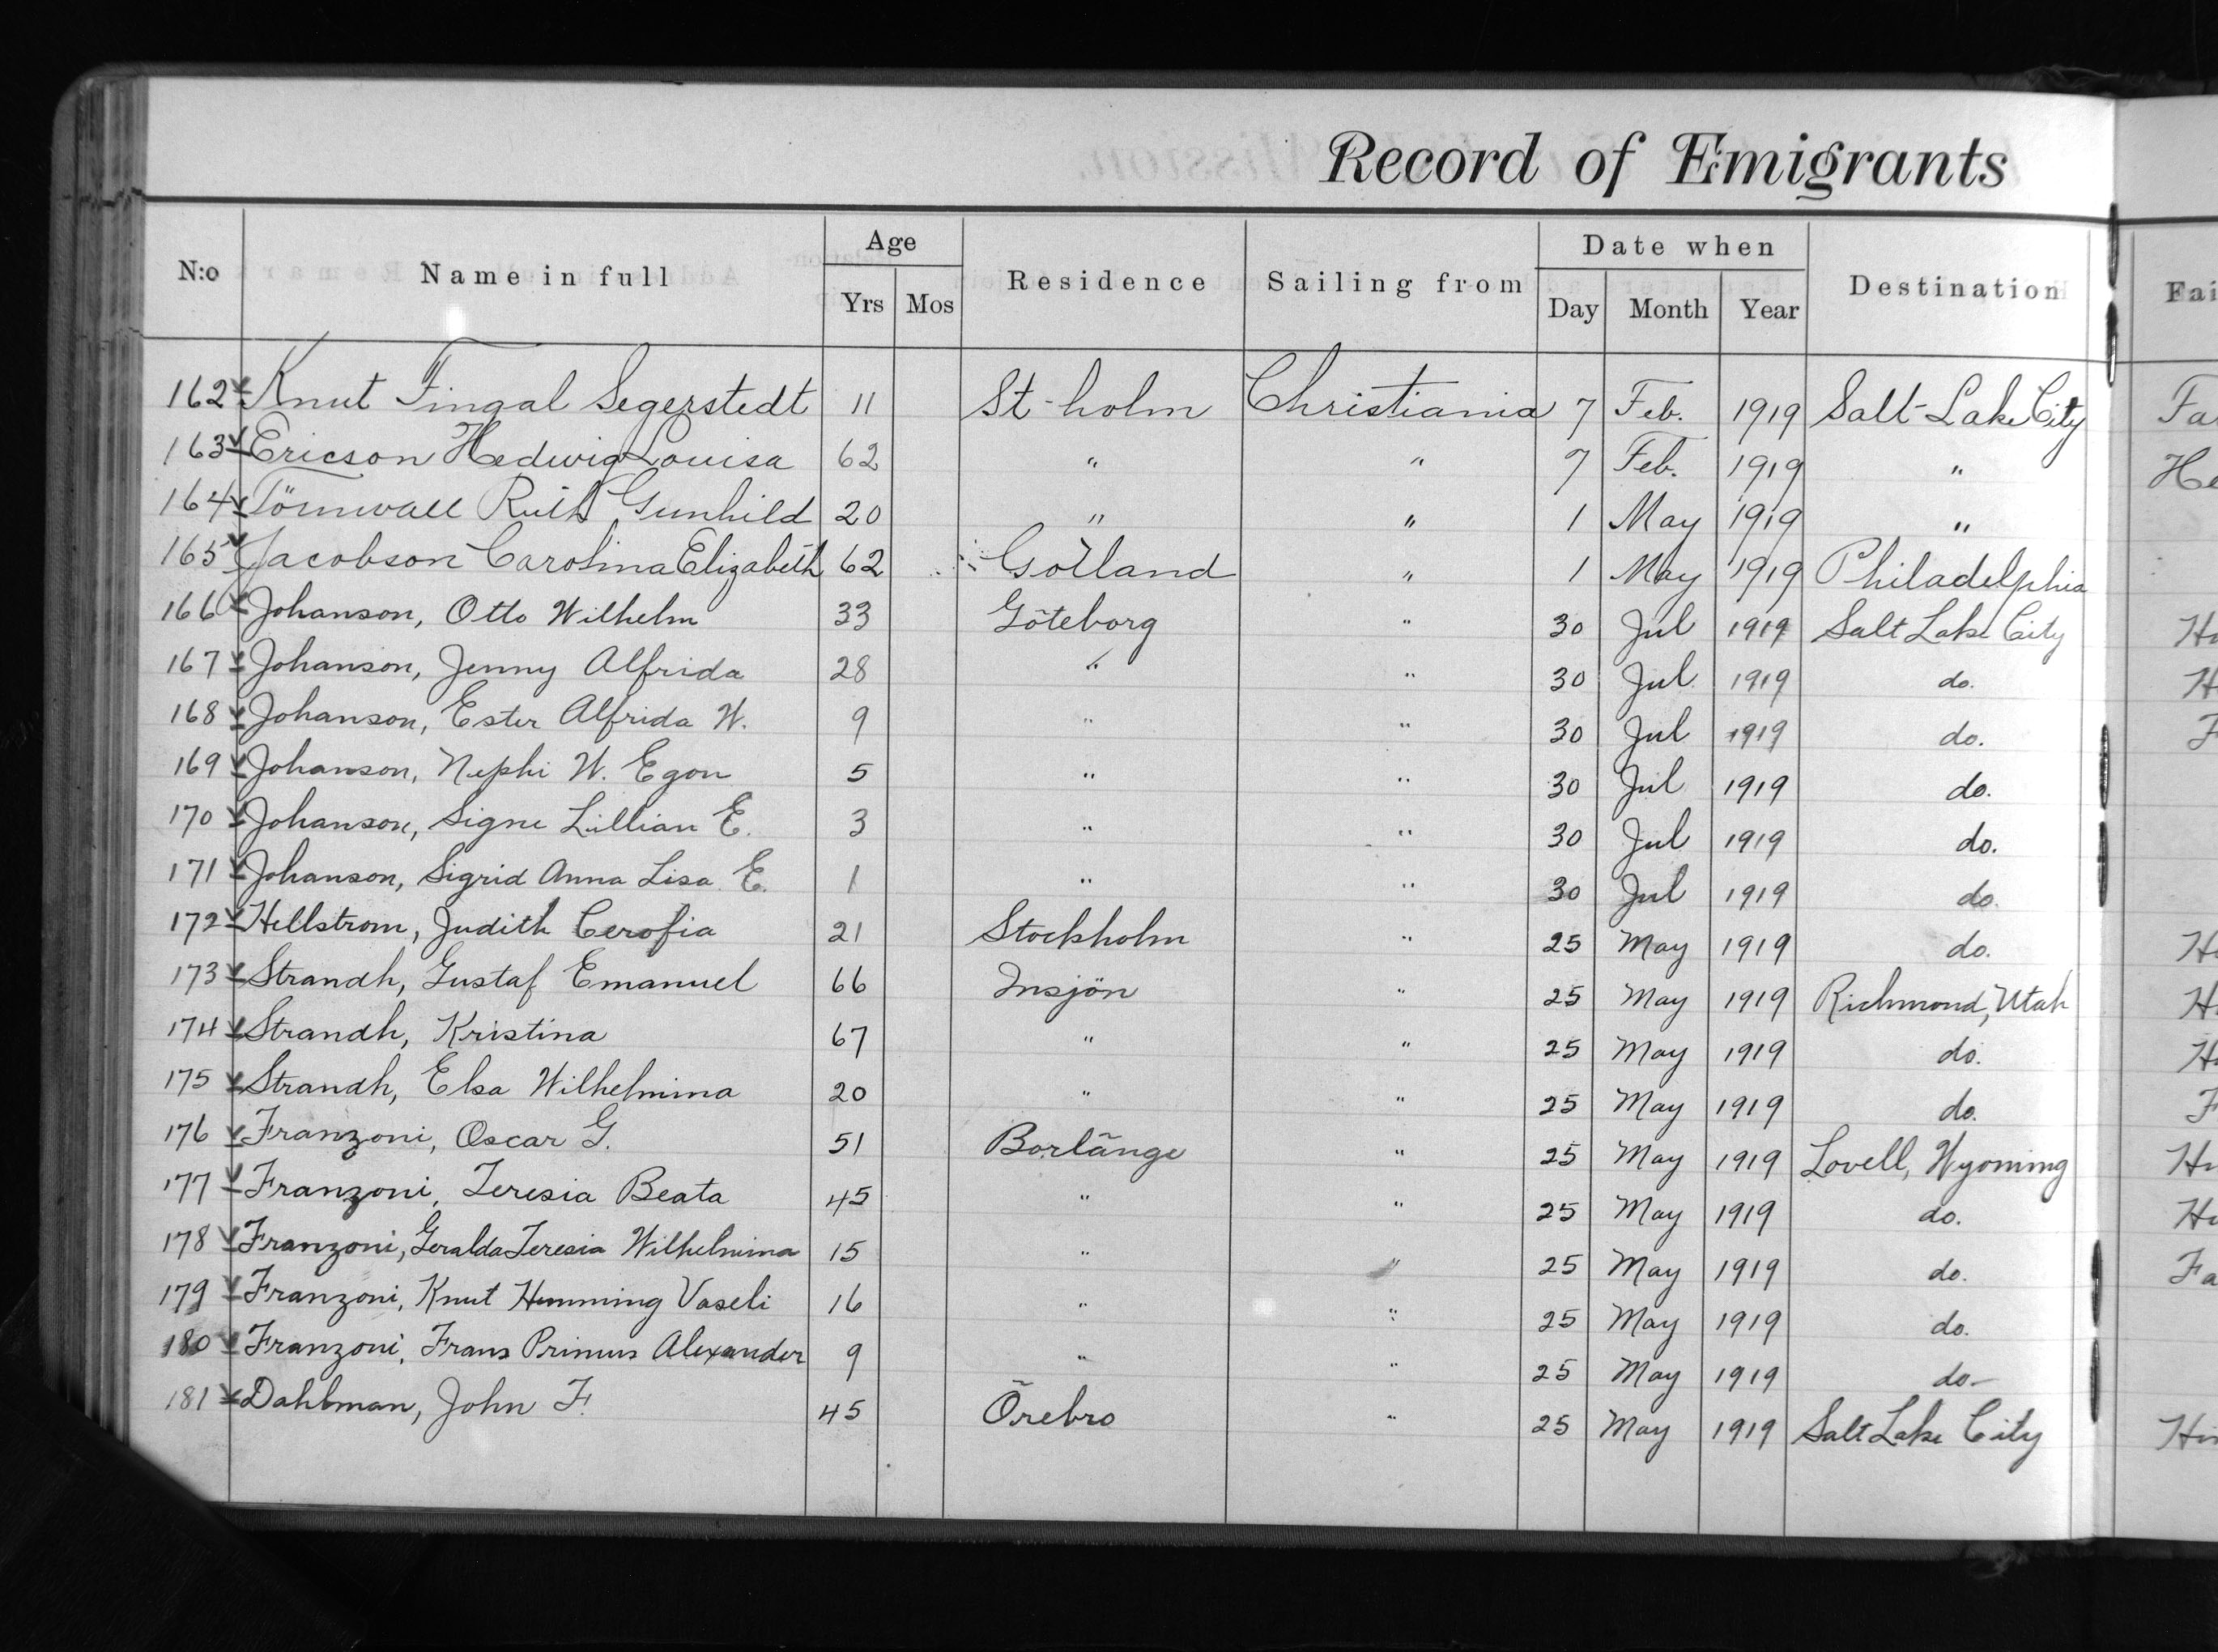 Record of Emigrants
N:o Name in full Age Residence Sailing from Date when Destination Fai
Yrs Mos Day Month Year
162 Knut Fingal Segerstedt 11 St-holm Christiania 7 Feb. 1919 Salt-Lake City Fa
163 Ericson Hedwig Louisa 62 " " 7 Feb. 1919 " He
164 Törnwall Ruth Gunhild 20 " " 1 May 1919 "
165 Jacobson Carolina Elizabeth 62 Gotland " 1 May 1919 Philadelphia
166 Johanson, Otto Wilhelm 33 Göteborg " 30 Jul 1919 Salt Lake City H
167 Johanson, Jenny Alfrida 28 " " 30 Jul 1919 do. H
168 Johanson, Ester Alfrida W. 9 " " 30 Jul 1919 do. F
169 Johanson, Nephi W. Egon 5 " " 30 Jul 1919 do.
170 Johanson, Signe Lillian E. 3 " " 30 Jul 1919 do.
171 Johanson, Sigrid Anna Lisa E. 1 " " 30 Jul 1919 do.
172 Hellstrom, Judith Cerofia 21 Stockholm " 25 May 1919 do. H
173 Strandh, Gustaf Emanuel 66 Insjön " 25 May 1919 Richmond, Utah H
174 Strandh, Kristina 67 " " 25 May 1919 do. H
175 Strandh, Elsa Wilhelmina 20 " " 25 May 1919 do. F
176 Franzoni, Oscar G. 51 Borlänge " 25 May 1919 Lovell, Wyoming H
177 Franzoni, Teresia Beata 45 " " 25 May 1919 do. H
178 Franzoni, Geralda Teresia Wilhelmina 15 " " 25 May 1919 do. Fa
179 Franzoni, Knut Hemming Vaseli 16 " " 25 May 1919 do.
180 Franzoni, Frans Primus Alexander 9 " " 25 May 1919 do-
181 Dahlman, John F. 45 Örebro " 25 May 1919 Salt Lake City Hi